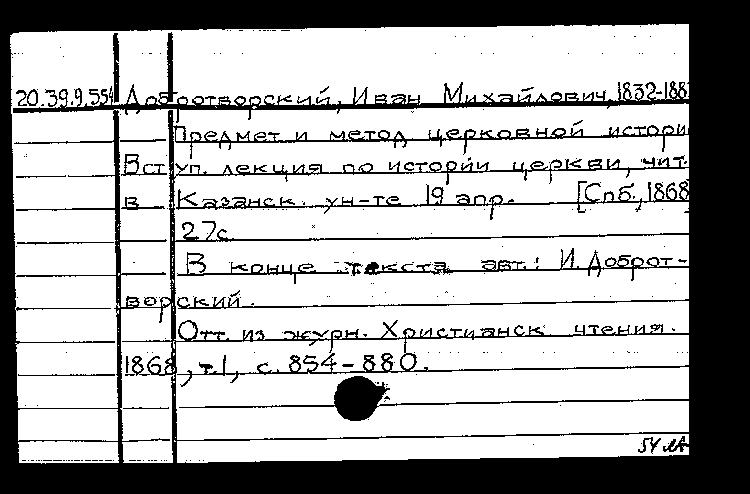 20.39.9.554 Добротворский, Иван Михайлович, 1832-188
Предмет и метод церковной истори
Вступ. лекция по истории церкви, чит.
в Казанск. ун-те 19 апр. [Спб., 1868
27с.
В конце текста авт.: И. Доброт-
ворский.
Отт. из журн. Христианск чтения.
1868, т.1, с. 854-880.
54